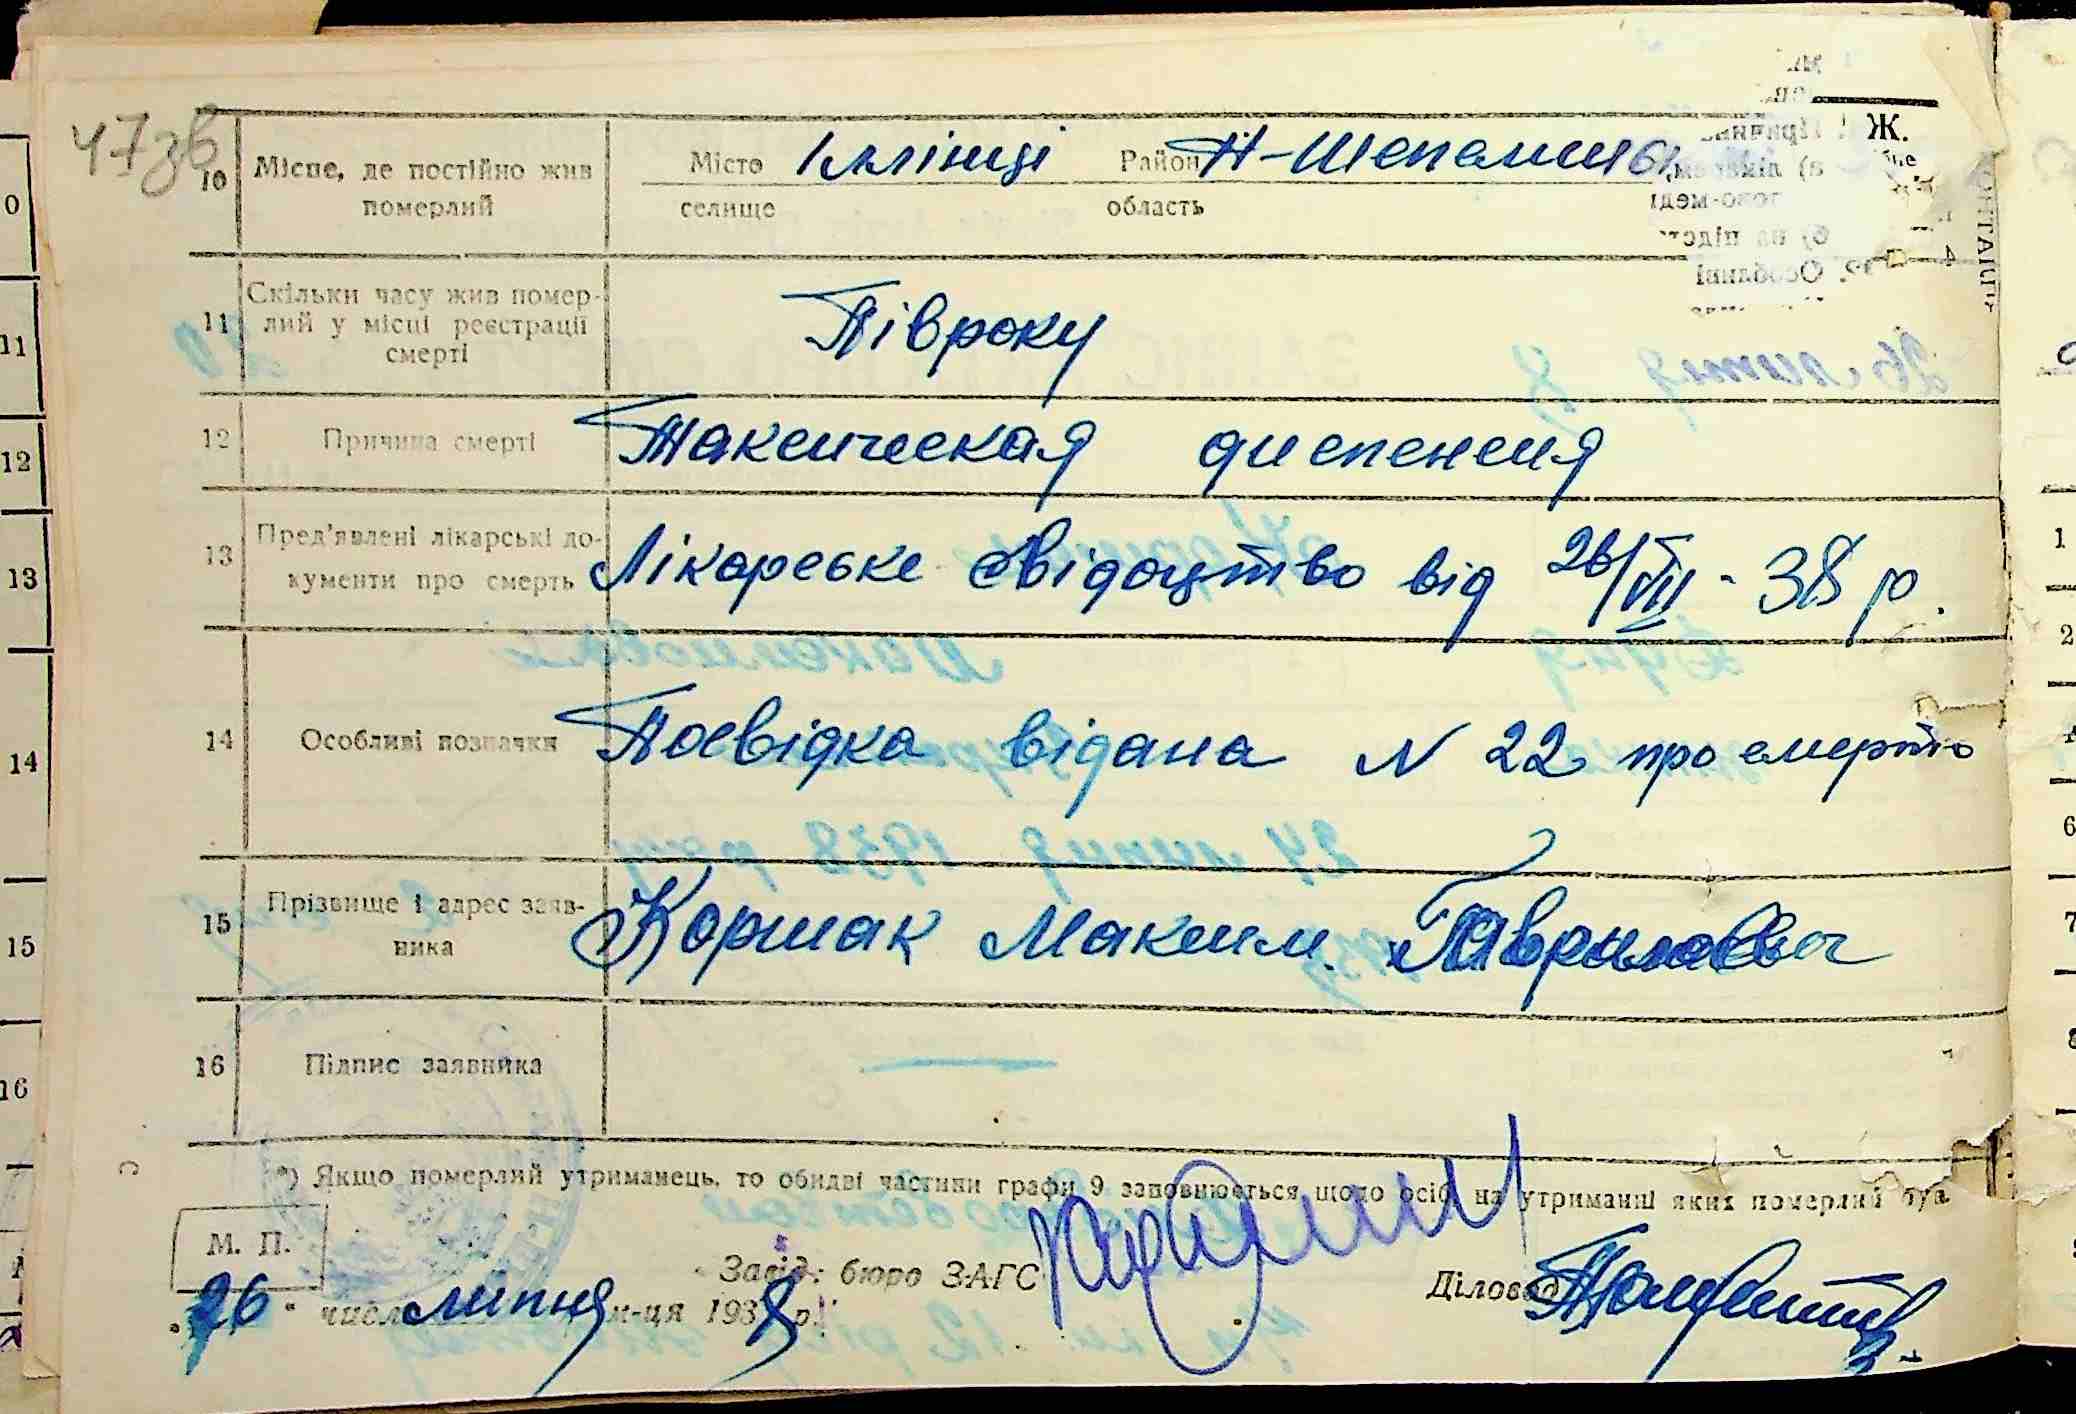 47зв
10 Місце, де постійно жив померлий Місто Іллінці Район Н-Шепелич
селище область
Ж.
11 Скільки часу жив помер-
лий у місці реєстрації
смерті
Півроку
12 Причина смерті Таксическая диспенсия
13 Пред'явлені лікарські до-
кументи про смерть
Лікарське свідоцтво від 26/VII - 38 р.
14 Особливі позначки Посвідка відана N 22 про смерть
15 Прізвище і адрес заяв-
ника
Коршак Максим. Гаврилович
16 Підпис заявника —
*) Якщо померлий утриманець, то обидві частини графи 9 заповнюється щодо осіб, на утриманні яких померлий був
М. П.
Завід. бюро ЗАГС
Діловод
26 " числ липня м-ця 1938 р.
0
11
12
13
14
15
16
1
2
6
7
8